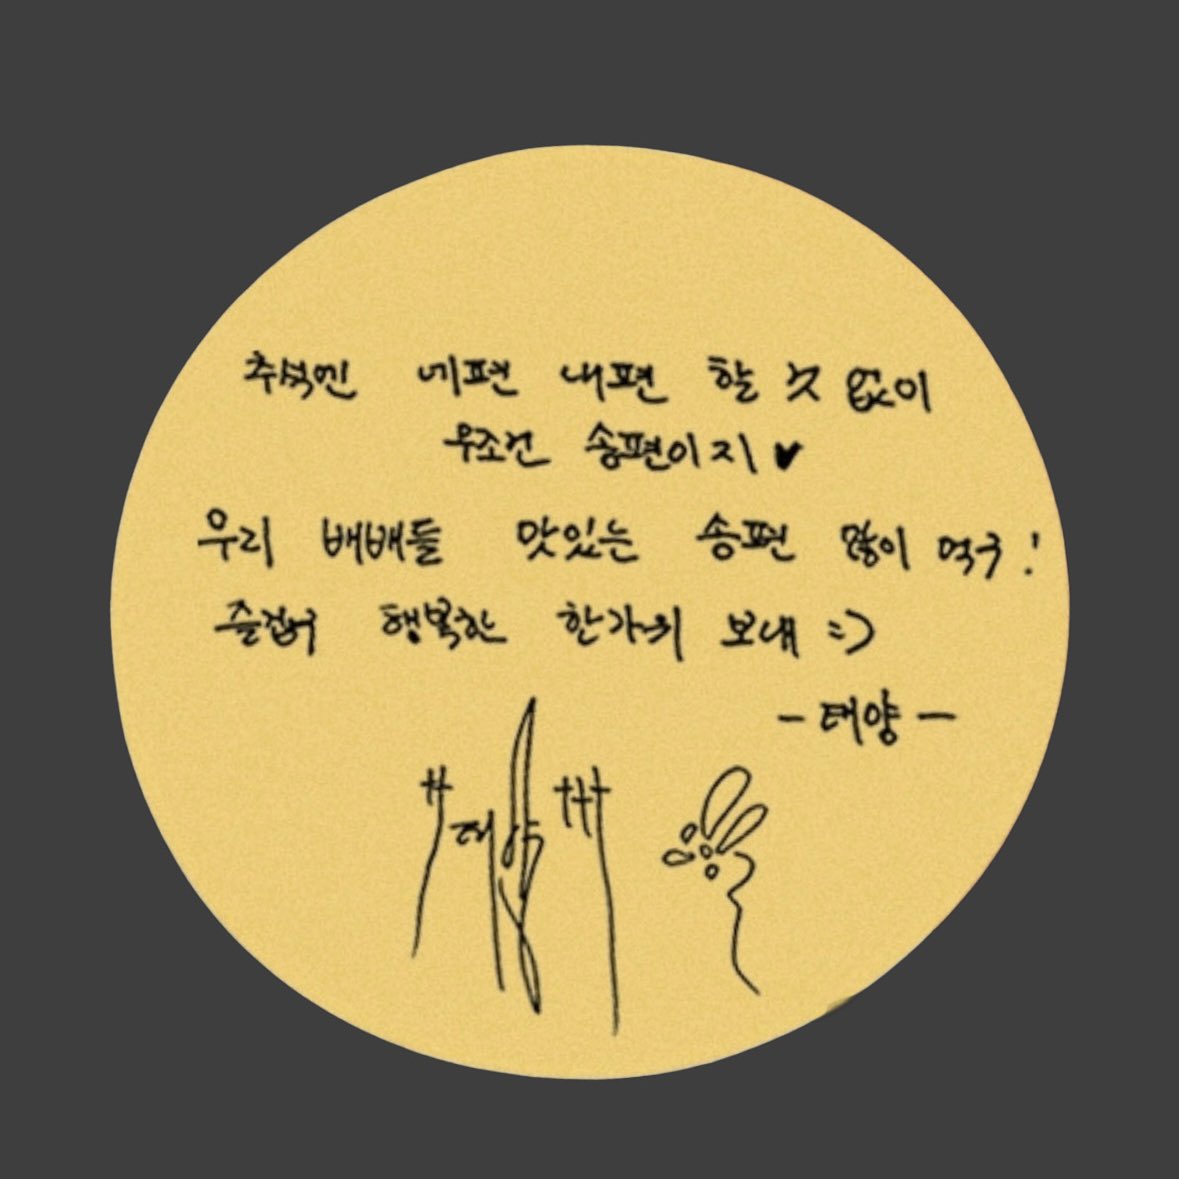 추석엔 네편 내편 할 것 없이
무조건 송편이지 ♥
우리 배배들 맛있는 송편 많이 먹구!
즐겁구 행복한 한가위 보내 :)
- 태양 -
태양